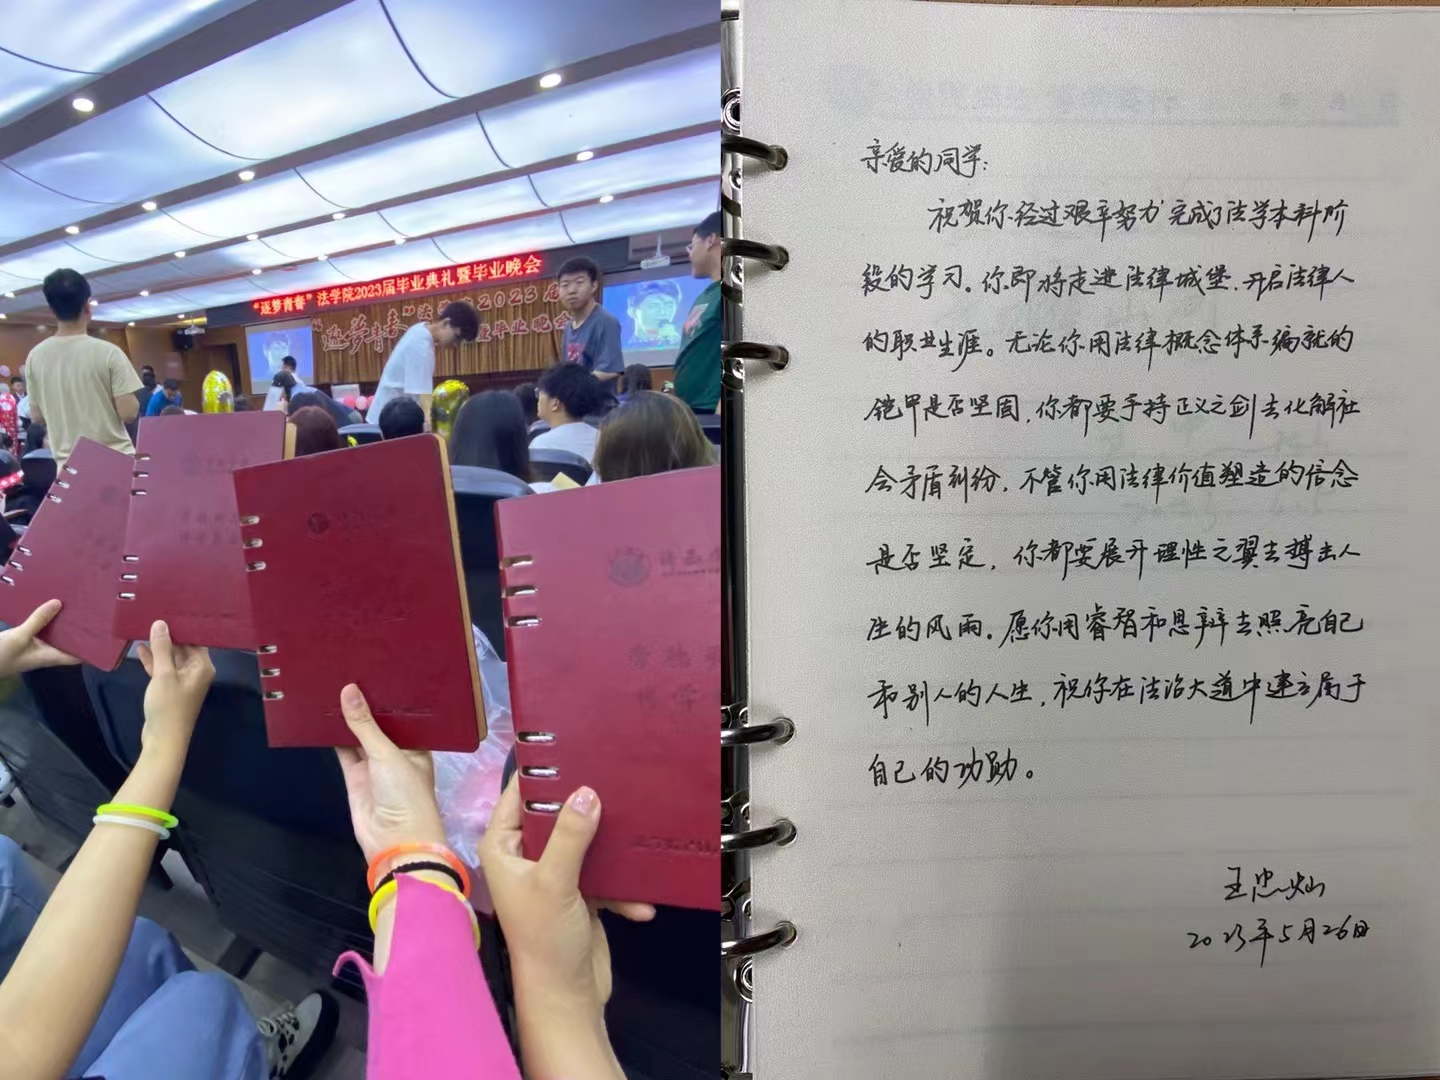 “逐梦青春”法学院2023届毕业典礼暨毕业晚会
“逐梦青春”法学院2023届
暨毕业晚会
亲爱的同学：
祝贺你经过艰辛努力完成了法学本科阶
段的学习。你即将走进法律城堡，开启法律人
的职业生涯。无论你用法律概念体系编就的
铠甲是否坚固，你都要手持正义之剑去化解社
会矛盾纠纷，不管你用法律价值塑造的信念
是否坚定，你都要展开理性之翼去搏击人
生的风雨。愿你用睿智和思辨去照亮自己
和别人的人生，祝你在法治大道中建立属于
自己的功勋。
王忠灿
2023年5月26日